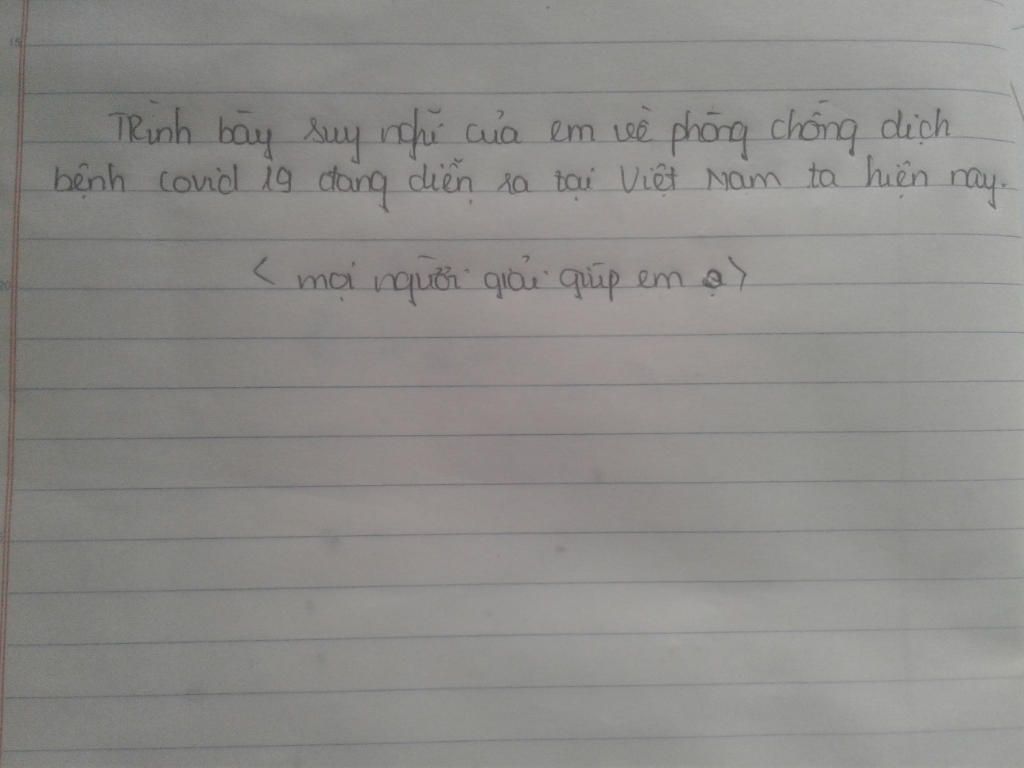 Trình bày suy nghĩ của em về phòng chống dịch
bệnh covid 19 đang diễn ra tại Việt Nam ta hiện nay.
< mọi người giải giúp em ạ >